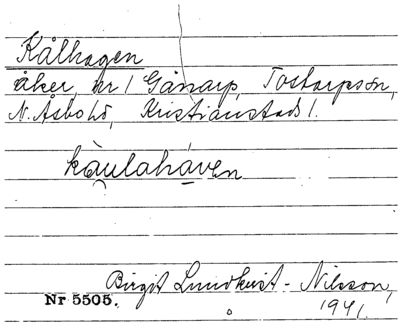 Kålhagen
åker, nr 1 Gånarp, Tostarpssn,
N. Åsbohd, Kristianstads l.
kàulahàven
Birgit Lundkvist-Nilsson,
Nr 5505.
1941.